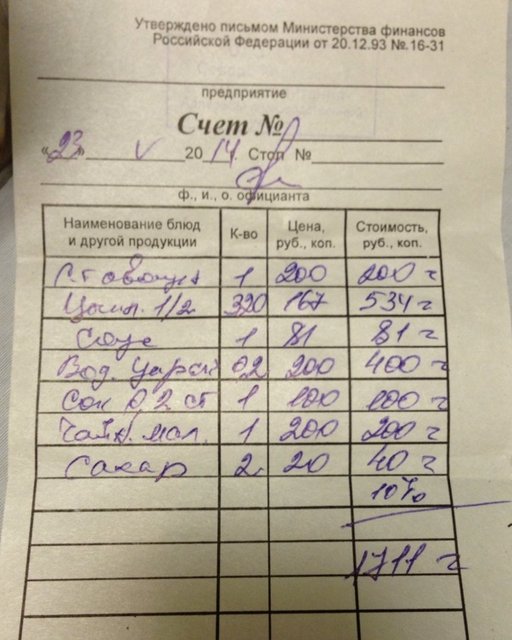 Утверждено письмом Министерства финансов
Российской Федерации от 20.12.93 №.16-31
предприятие
Счет №
«23» V 2014. Стол №
ф., и., о. официанта
Наименование блюд и другой продукции К-во Цена, руб., коп. Стоимость, руб., коп.
1 200 200 г
Цыпл. 1/2 320 167 534 г
Соус 1 81 81 г
Вод. Царск 0,2 200 400 г
Сок 0,2 ст 1 100 100 г
Чайн. мал. 1 200 200 г
Сахар 2 20 40 г
10%
1711 г